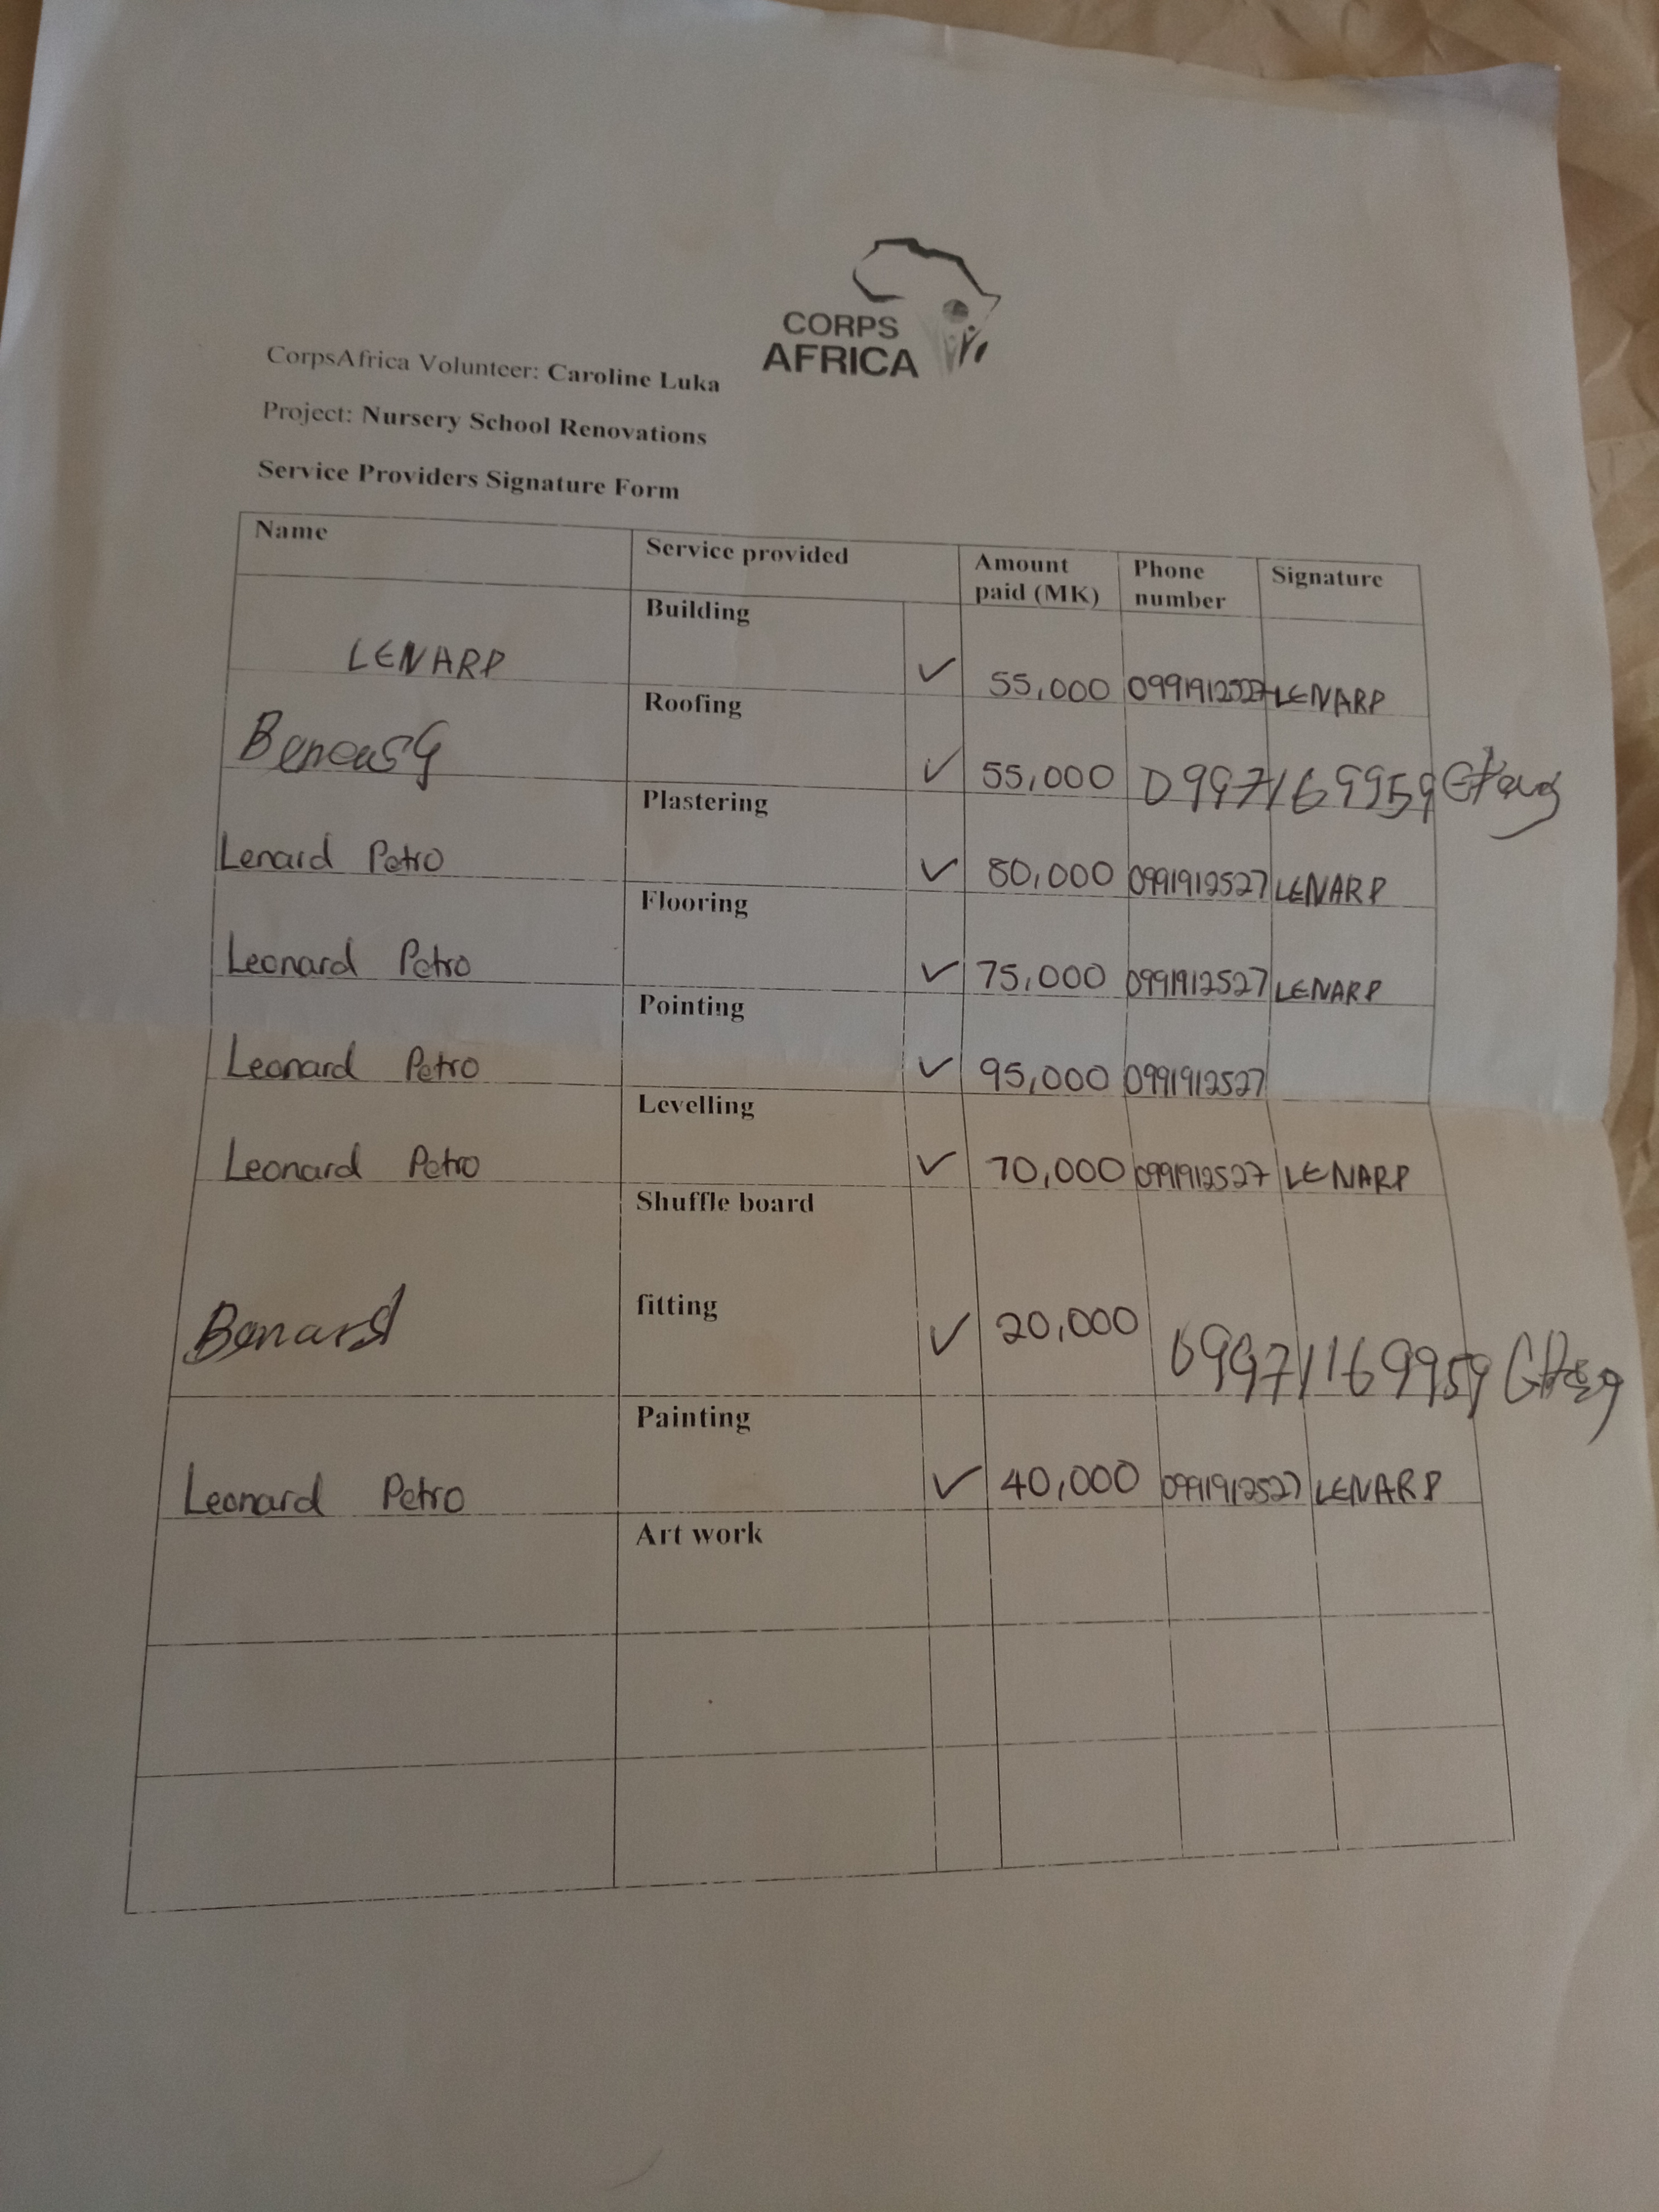 CORPS
AFRICA
CorpsAfrica Volunteer: Caroline Luka
Project: Nursery School Renovations
Service Providers Signature Form
Name Service provided Amount paid (MK) Phone number Signature
LENARP Building ✓ 55,000 0991912527 LENARP
Roofing ✓ 55,000 0997169959
Lenard Petro Plastering ✓ 80,000 0991912527 LENARP
Leonard Petro Flooring ✓ 75,000 0991912527 LENARP
Leonard Petro Pointing ✓ 95,000 0991912527
Leonard Petro Levelling ✓ 70,000 0991912527 LENARP
Benard Shuffle board fitting ✓ 20,000 0997169959
Leonard Petro Painting ✓ 40,000 0991912527 LENARP
Art work